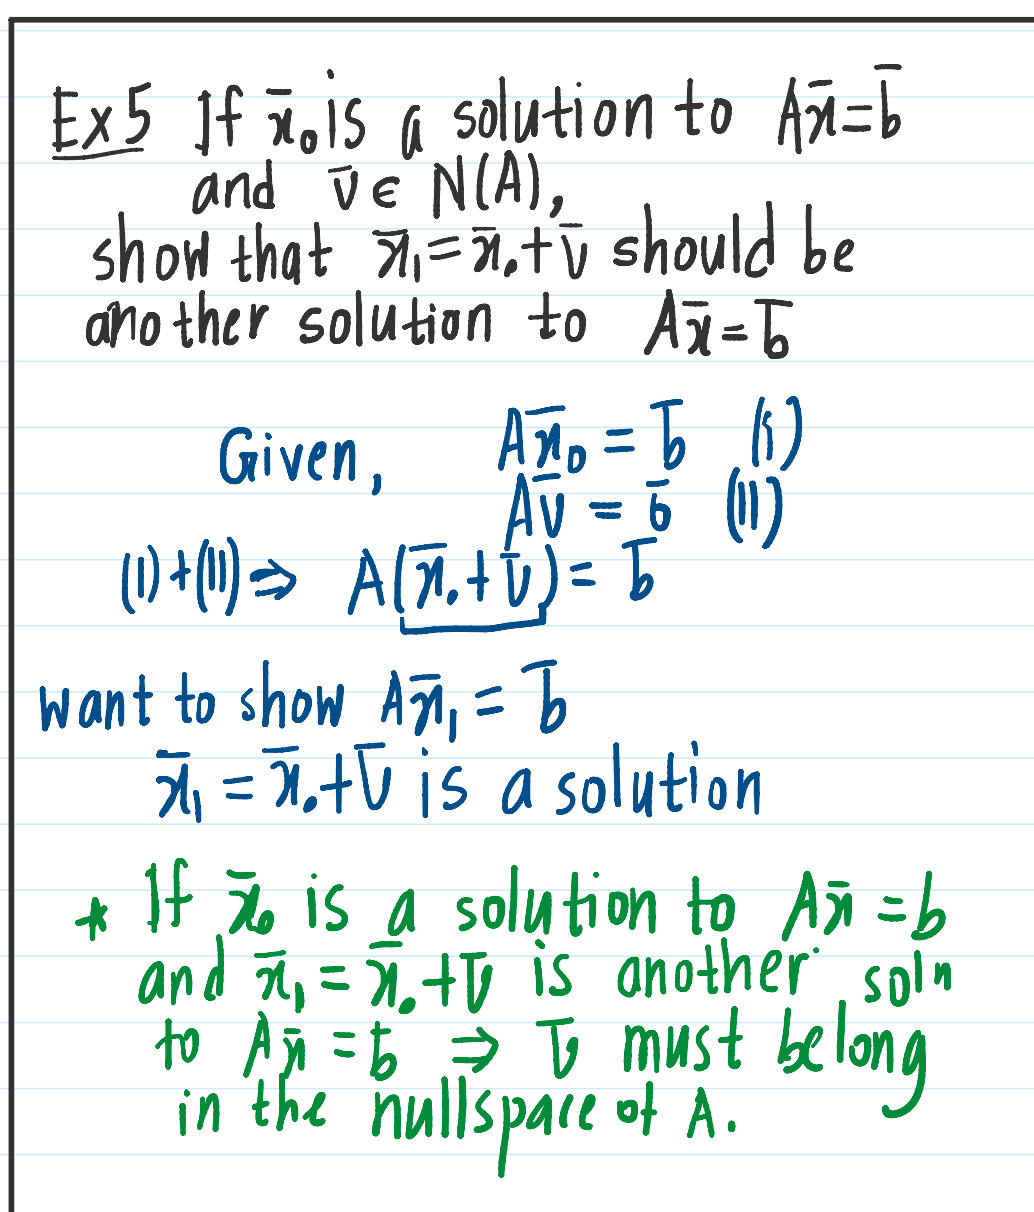 Ex5 If x̄₀ is a solution to Ax̄ = b̄
and v̄ ∈ N(A),
show that x̄₁ = x̄₀ + v̄ should be
another solution to Ax̄ = b̄
Given, Ax̄₀ = b̄ (i)
Av̄ = ō (II)
(I) + (II) ⇒ A(x̄₀ + v̄) = b̄
want to show Ax̄₁ = b̄
x̄₁ = x̄₀ + v̄ is a solution
* If x̄₀ is a solution to Ax̄ = b
and x̄₁ = x̄₀ + v̄ is another soln
to Ax̄ = b̄ ⇒ v̄ must belong
in the nullspace of A.